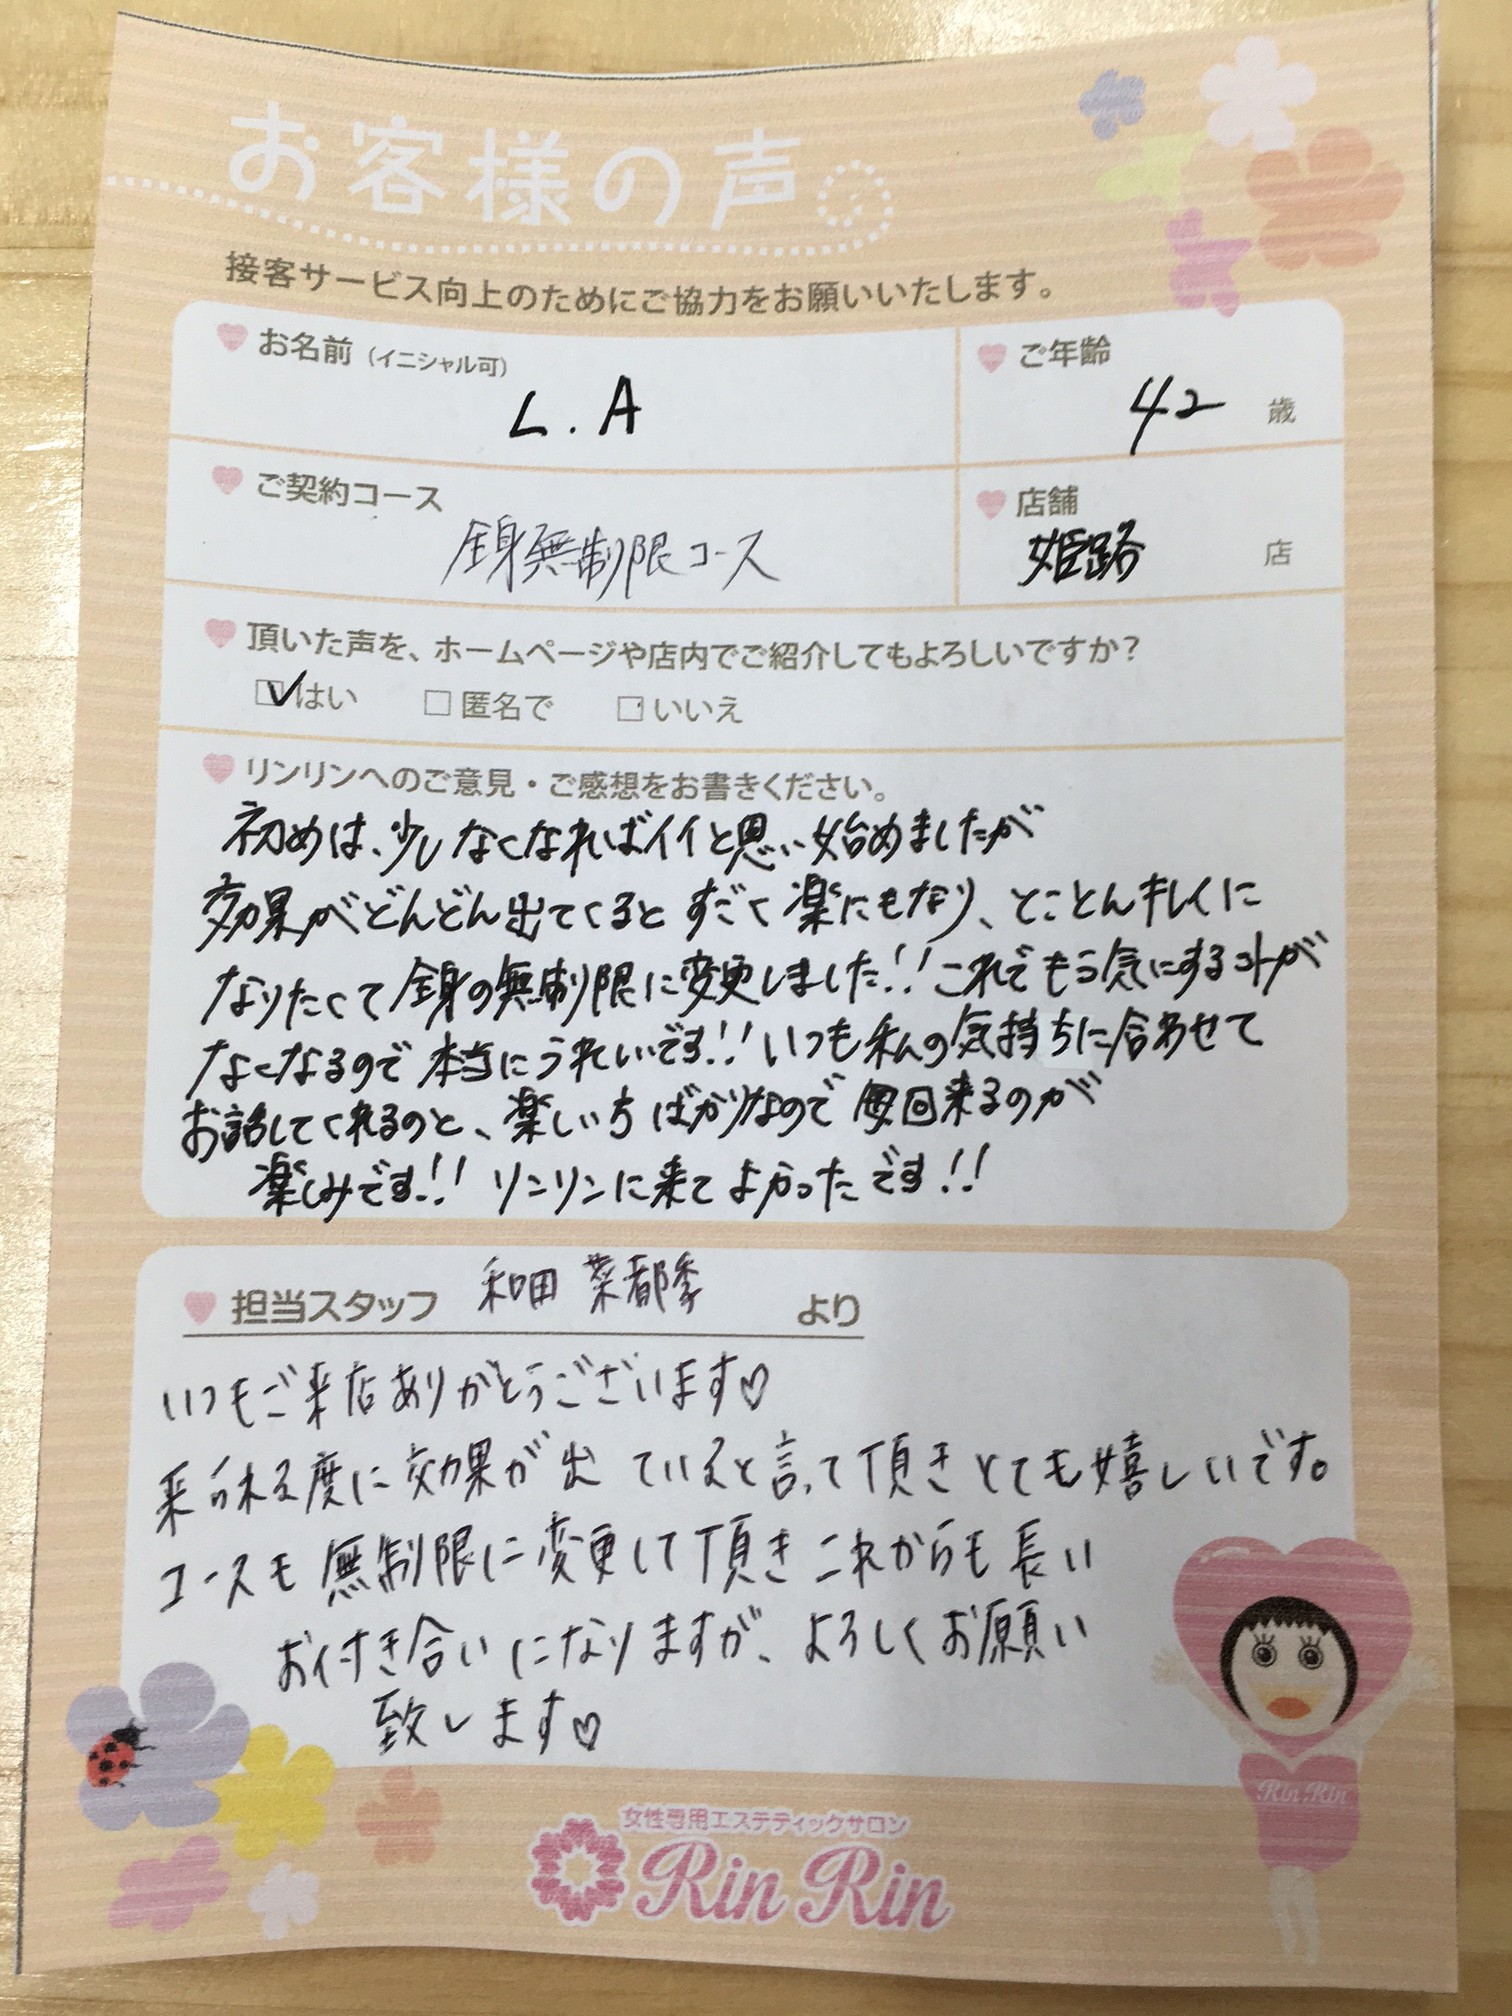 お客様の声
接客サービス向上のためにご協力をお願いいたします。
お名前（イニシャル可）
L.A
ご年齢
42 歳
ご契約コース
全身無制限コース
店舗
姫路 店
頂いた声を、ホームページや店内でご紹介してもよろしいですか？
はい 匿名で いいえ
リンリンへのご意見・ご感想をお書きください。
初めは、少しなくなればイイと思い始めましたが
効果がどんどん出てくると すごく楽にもなり、とことんキレイに
なりたくて全身の無制限に変更しました!! これでもう気にするコトが
なくなるので本当にうれしいです!! いつも私の気持ちに合わせて
お話してくれるのと、楽しい ばかりなので毎回来るのが
楽しみです!! リンリンに来てよかったです!!
担当スタッフ 和田 菜都季 より
いつもご来店ありがとうございます♡
来られる度に効果が出ているると言って頂きとても嬉しいです。
コースも無制限に変更して頂きこれからも長い
お付き合いになりますが、よろしくお願い
致します♡
Rin Rin
女性専用エステティックサロン
Rin Rin